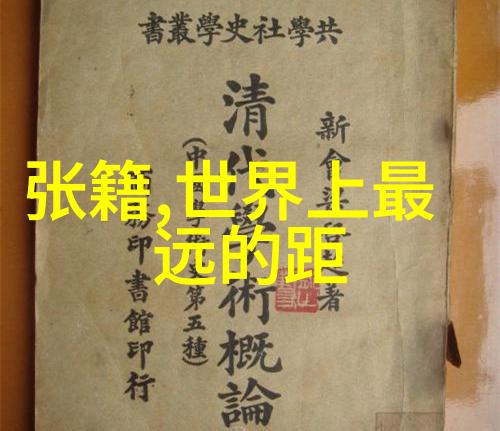 共學社史學叢書
新會梁著
清代學術概論
(中第五種)
務印書館印行
张籍,世界上最
远的距